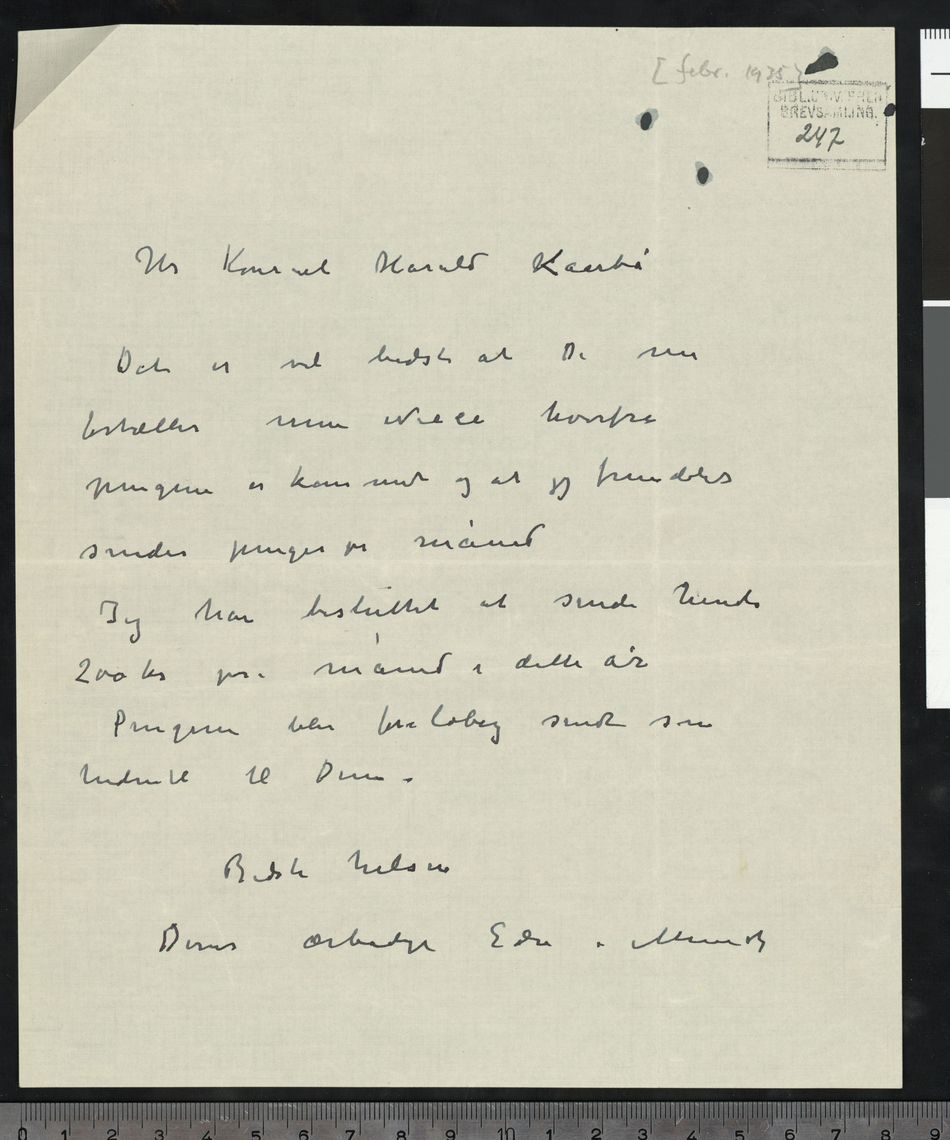 [febr. 1935]
BIBL. UNIV. BREVSAMLING.
247
Hr Konsul Harald Kaarbø
Det er vel bedst at De nu
fortæller min Niece hvorfra
pengene er kommet og at jeg fremdeles
sender penger pr måned
Jeg har besluttet at sende hende
200 kr pr. måned i dette år
Pengene blir foreløbig sendt som
hidentil til Dem.
Bedste hilsen
Deres ærbødige Edv. Munch
0 1 2 3 4 5 6 7 8 9 10 1 2 3 4 5 6 7 8 9